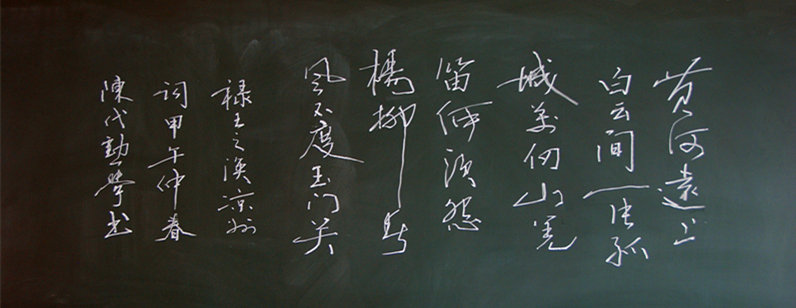 黄河遠上
白云间一片孤
城萬仞山羌
笛何须怨
楊柳春
风不度玉门关
禄王之涣凉州
词甲午仲春
陳代勤學书